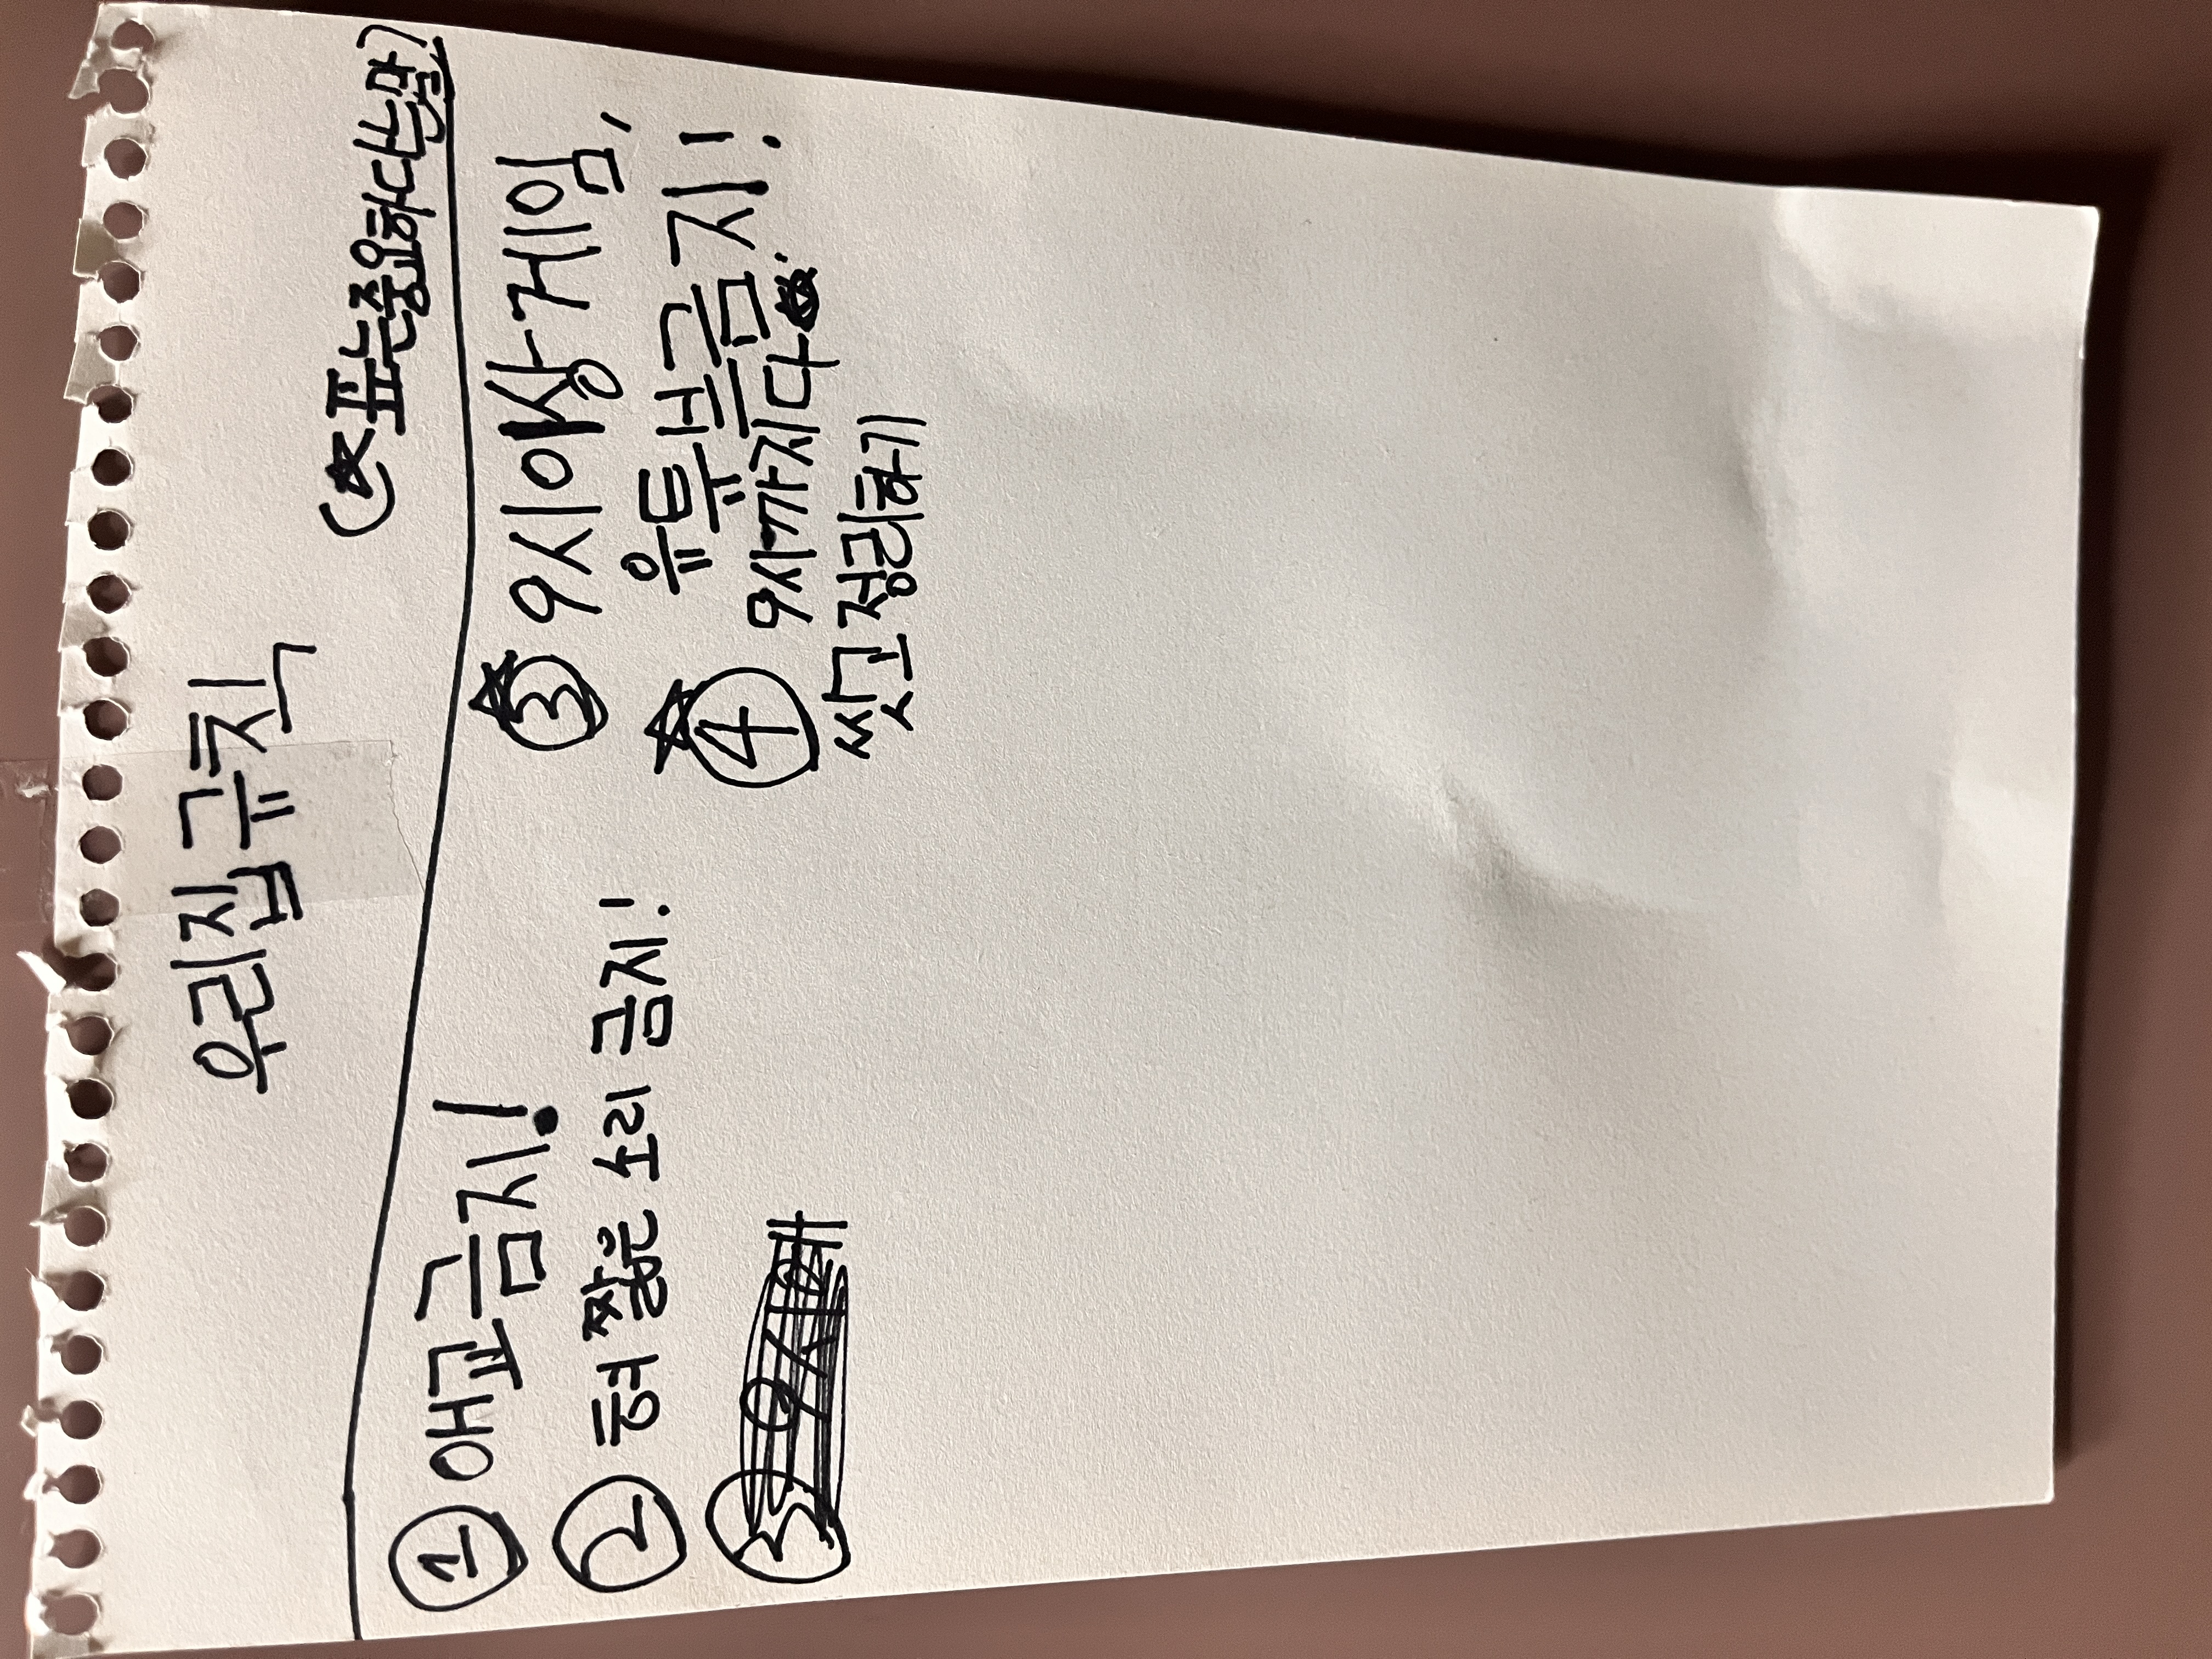 우리집 규칙
(★표는 중요하다는 말)
① 애교금지!
② 혀 짧은 소리 금지!
★③ 9시이상 게임,
유튜브금지!
★④ 9시까지 다
씻고 정리하기